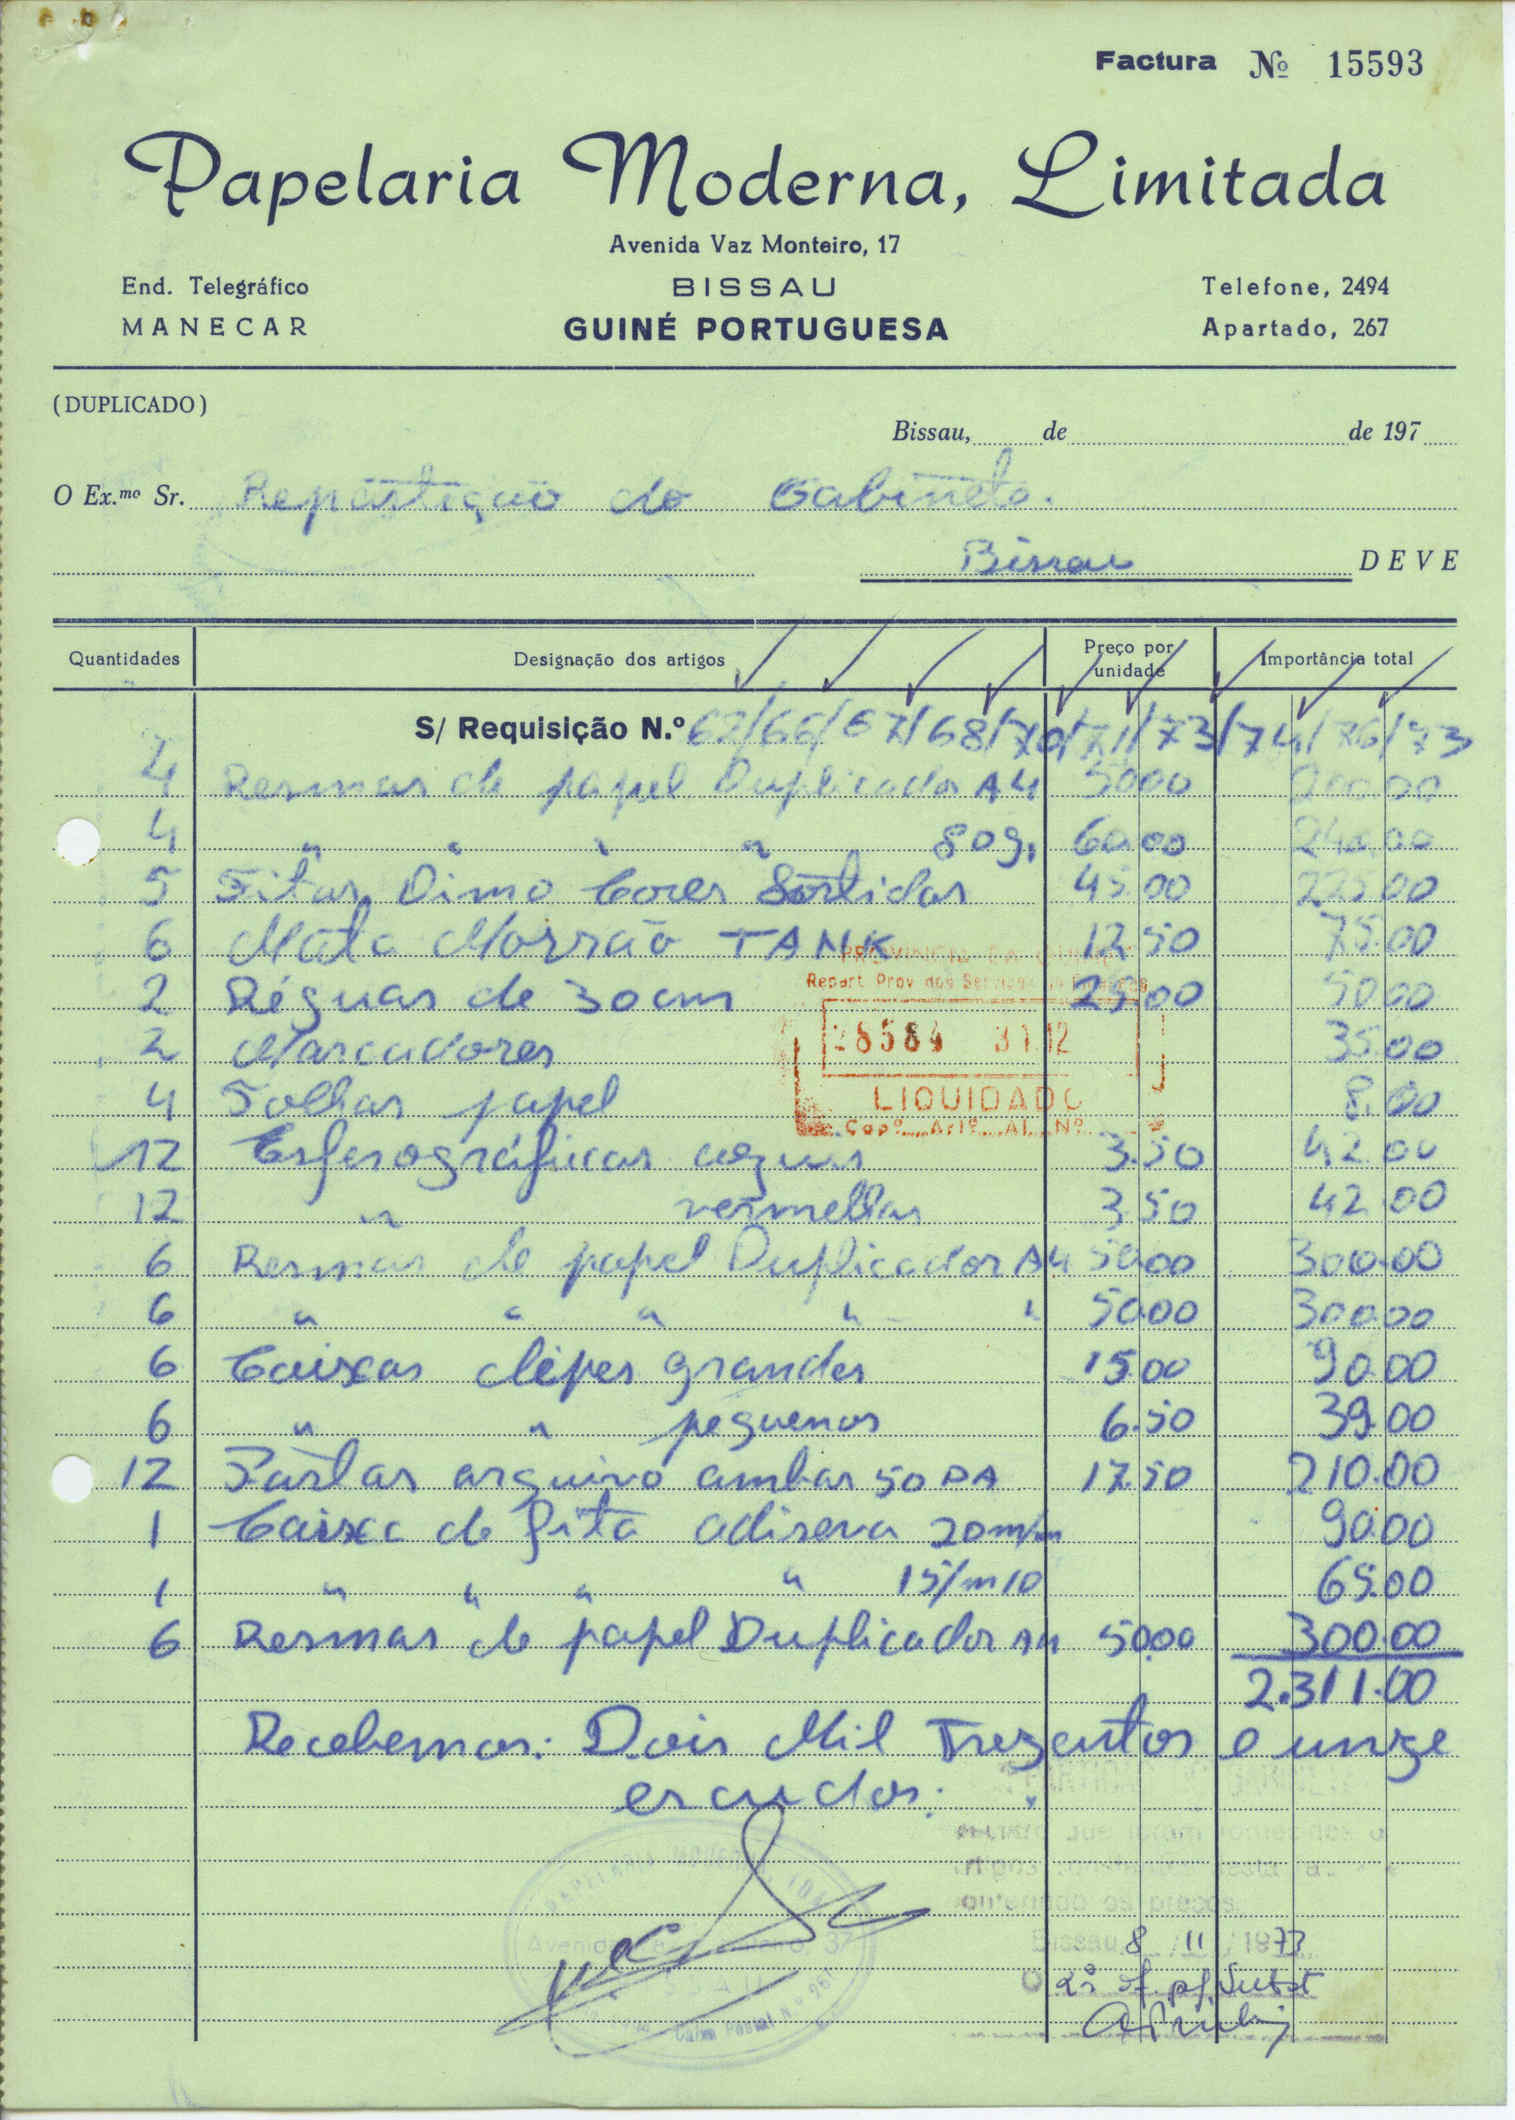 Factura Nº 15593
Papelaria Moderna, Limitada
Avenida Vaz Monteiro, 17
End. Telegráfico BISSAU Telefone, 2494
MANECAR GUINÉ PORTUGUESA Apartado, 267
(DUPLICADO)
Bissau, de de 197
O Ex.mo Sr. Repartição do Gabinete.
Bissau DEVE
Quantidades Designação dos artigos Preço por unidade Importância total
S/ Requisição N.º 62/66/67/68/70/71/73/74/76/73
4 Resmas de papel Duplicador A4 50.00 200.00
4 " " " " 80g. 60.00 240.00
5 Fitas Dimo Cores Sortidas 45.00 225.00
6 Mata Morrão TANK 12.50 75.00
2 Réguas de 30cm 25.00 50.00
2 Marcadores 35.00
4 Folhas papel 8.00
12 Esferográficas azuis 3.50 42.00
12 " vermelhas 3.50 42.00
6 Resmas de papel Duplicador A4 50.00 300.00
6 " " " " " 50.00 300.00
6 Caixas clipes grandes 15.00 90.00
6 " " pequenos 6.50 39.00
12 Pastas arquivo ambar 50 PA 17.50 210.00
1 Caixa de fita adiseva 20m/m
90.00
1 " " " " 15/m10 65.00
6 Resmas de papel Duplicador A4 50.00 300.00
2.311.00
Recebemos: Dois Mil Trezentos e unze
escudos.
PROVINCIA DA GUINÉ
Repart Prov dos Serviços de Finanças
28584 31.12
LIQUIDADO
Capº Artº Al. Nº
PAPELARIA MODERNA, LDA
Avenida 37
BISSAU
Caixa Postal N.º 267
que foram fornecidos o
artigos esta
os preços.
Bissau 8 / 11 / 1973
O 2º of. pf. Subst